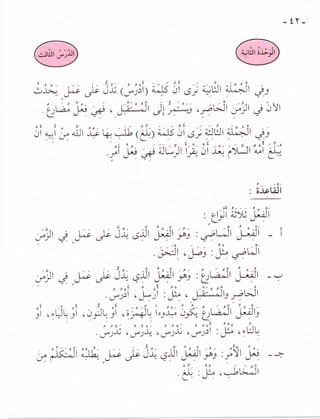 - ٤٢ -
الوَحْدَةُ الثَّانِيَةُ
الدَّرْسُ الثَّالِث
وفي الجُمْلَةِ الثَّانِيَةِ نَرَى أَنَّ كَلِمَةَ (أَدْرُسُ) تَدُلُّ عَلَى عَمَلٍ يَحْدُثُ
الآنَ في الزَّمَنِ الحَاضِرِ، ويَسْتَمِرُّ إِلَى المُسْتَقْبَلِ، فَهِيَ فِعْلٌ مُضَارِعٌ.
وفي الجُمْلَةِ الثَّالِثَةِ نَرَى أَنَّ كَلِمَةَ (بَلِّغْ) طَلَبَ بِهَا عَبْدُ اللهِ مِنْ أَخِيهِ أَنْ
يُبَلِّغَ أُمَّهُ السَّلَامَ بَعْدَ أَنْ يَقْرَأَ الرِّسَالَةَ فَهِيَ فِعْلُ أَمْرٍ.
القَاعِدَة :
الفِعْلُ ثَلَاثَةُ أَنْوَاعٍ :
أ - الفِعْلُ المَاضِي : وَهُوَ الفِعْلُ الَّذِي يَدُلُّ عَلَى عَمَلٍ في الزَّمَنِ
المَاضِي مِثْلُ : وَصَلَ ، الْتَحَقَ .
ب - الفِعْلُ المُضَارِعُ : وَهُوَ الفِعْلُ الَّذِي يَدُلُّ عَلَى عَمَلٍ في الزَّمَنِ
الحَاضِرِ والمُسْتَقْبَلِ ، مِثْلُ : أُرْسِلُ ، أَدْرُسُ .
والفِعْلُ المُضَارِعُ يَكُونُ مَبْدُوءًا بِالهَمْزَةِ ، أَوْ بِالنُّونِ ، أَوْ بِاليَاءِ ، أَوْ
بِالتَّاءِ ، مِثْلُ : أَدْرُسُ ، نَدْرُسُ ، يَدْرُسُ ، تَدْرُسُ .
جـ - فِعْلُ الأَمْرِ : وَهُوَ الفِعْلُ الَّذِي يَدُلُّ عَلَى عَمَلٍ يَطْلُبُهُ المُتَكَلِّمُ مِنَ
المُخَاطَبِ ، مِثْلُ : بَلِّغْ .